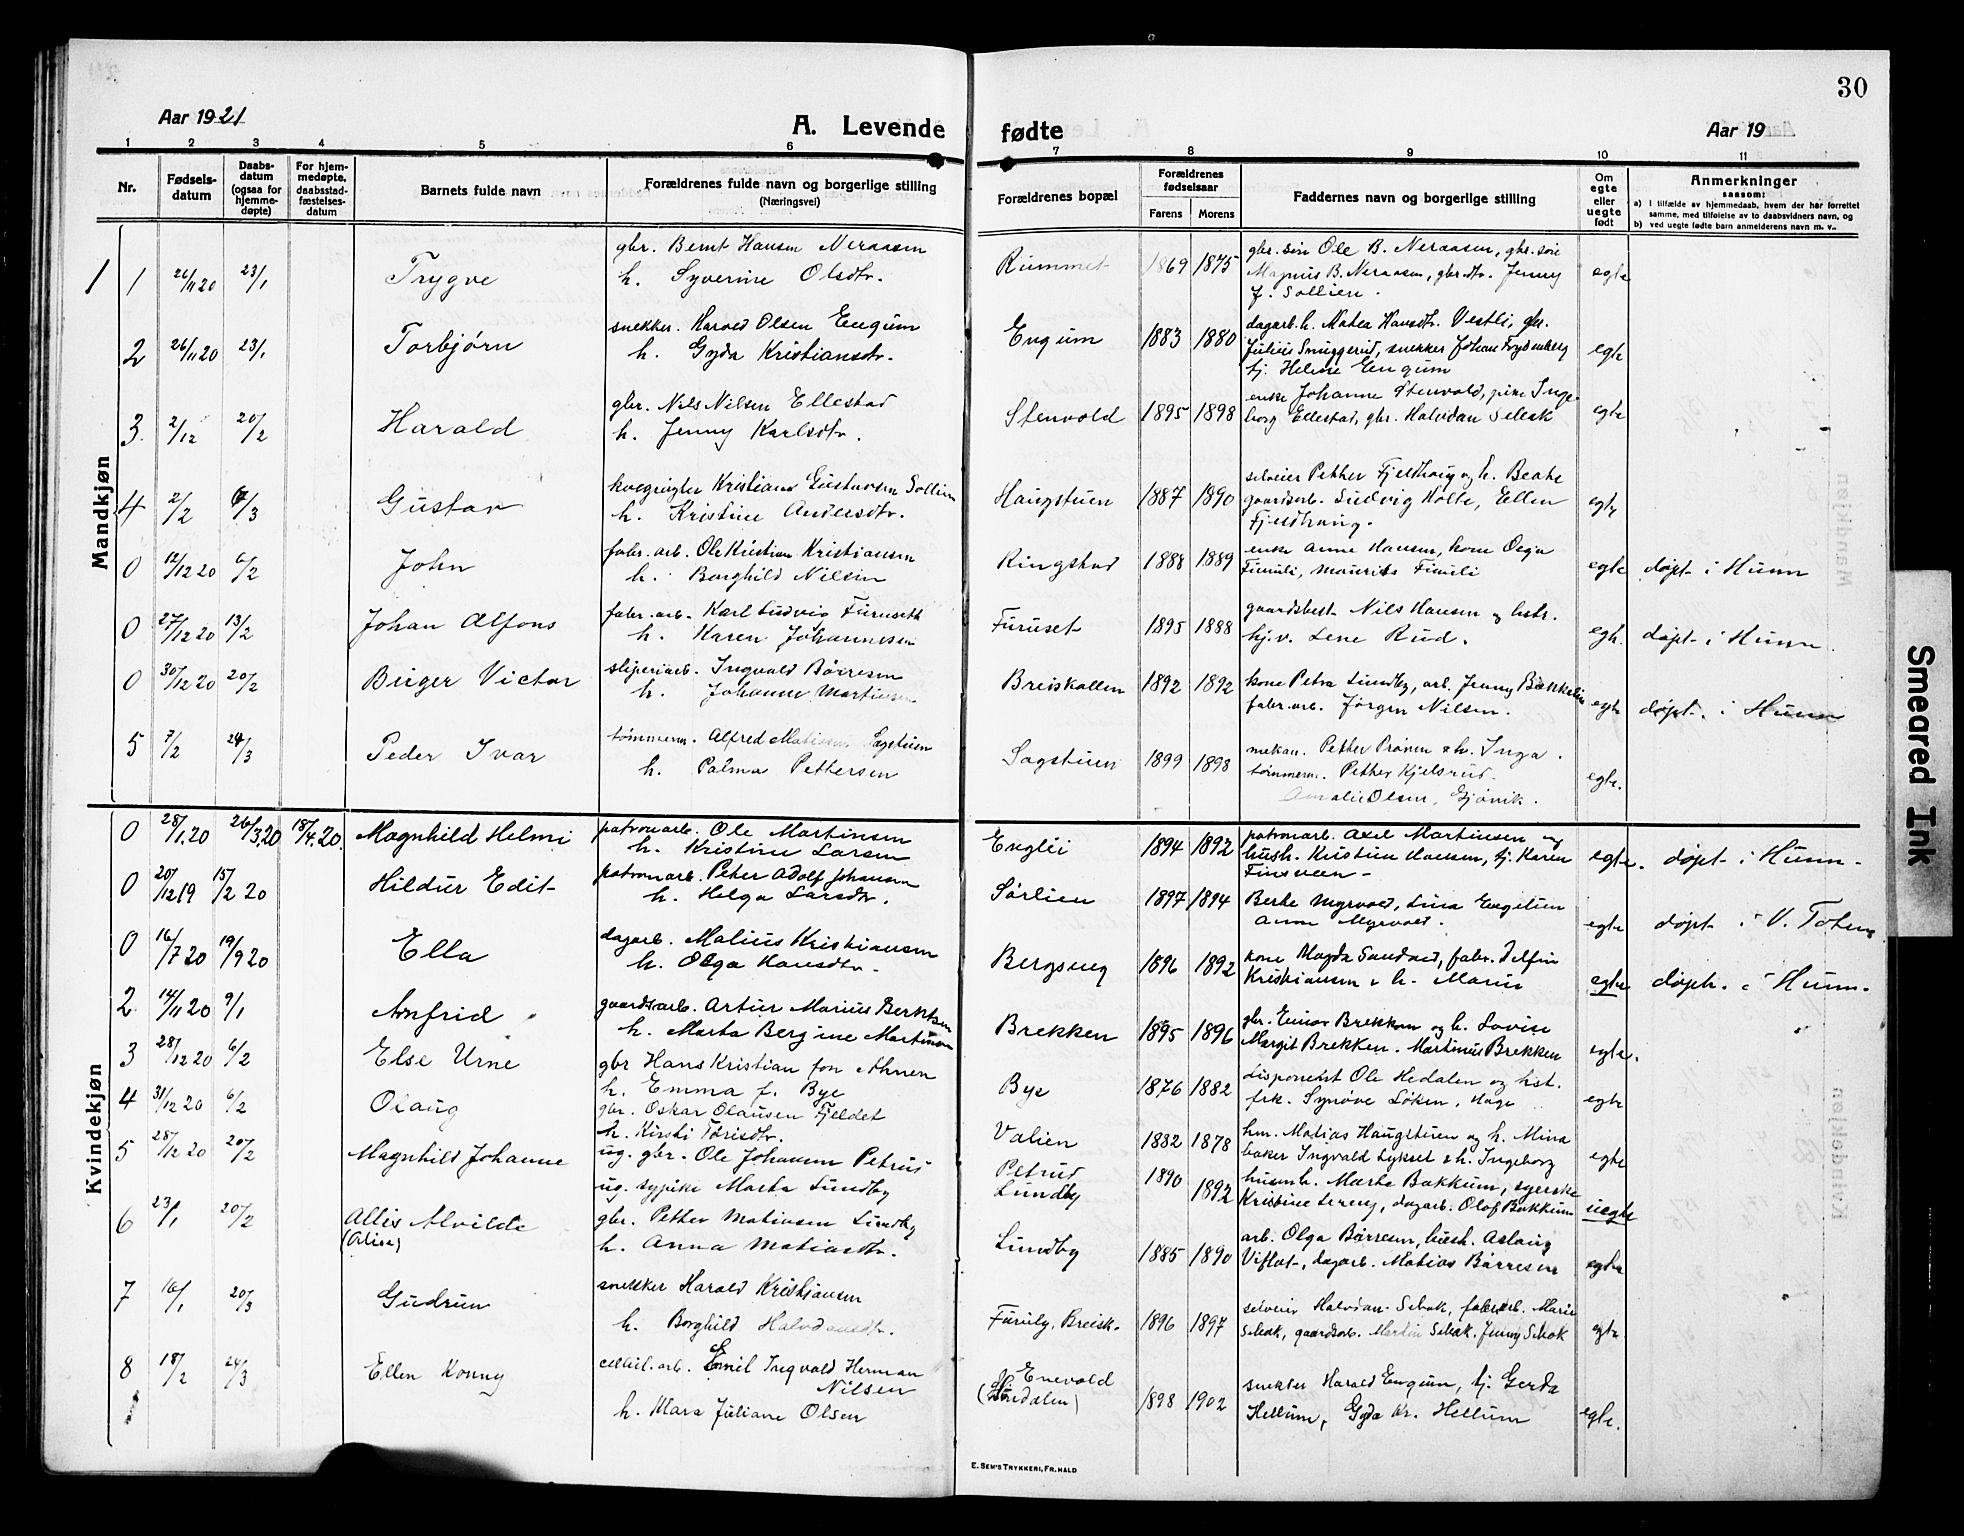 30
Aar 1921
A. Levende
fødte
Aar 19
1 2 3 4 5 6 7 8 9 10 11
Nr.
Fødsels-
datum
Daabs-
datum
(ogsaa for
hjemme-
døpte)
For hjem-
medøpte,
daabsstad-
fæstelses-
datum
Barnets fulde navn
Forældrenes fulde navn og borgerlige stilling
(Næringsvei)
Forældrenes bopæl
Forældrenes
fødselsaar
Farens
Morens
Faddernes navn og borgerlige stilling
Om
egte
eller
uegte
født
Anmerkninger
saasom:
a) i tilfælde av hjemmedaab, hvem der har forrettet
samme, med tilføielse av to daabsvidners navn, og
b) ved uegte fødte barn anmelderens navn m. v..
Mandkjøn
1 1 26/11 20 23/1 Trygve
gbr. Bernt Hansen Neraasen
h. Syverine Olsdtr.
Rummet 1869 1875
gbr. søn Ole B. Neraasen, gbr. søn
Magnus B. Neraasen, gbr. dtr. Jenny
f. Sollien.
egte
2 26/11 20 23/1 Torbjørn
snekker. Harald Olsen Engum
h. Gyda Kristiansdtr.
Engum 1883 1880
dagarb. h. Matea Hansdtr. Vestli, gbr.
Julius Snuggerud, snekker Johan Frydenberg
tj. Helene Engum
egte
3. 2/12 20/2 Harald
gbr. Nils Nilsen Ellestad
h. Jenny Karlsdtr.
Stenvold 1895 1898
enke Johanne Stenvold, pike Inge-
borg Ellestad, gbr. Halvdan Selbak
egte
4 2/2 6/3 Gustav
Kristians Gustavsen Sollien
h. Kristine Andersdtr.
Haugstuen 1887 1890
selveier Petter Fjeldhaug og h. Beate
gaardsarb. Ludvig Holte, Ellen
Fjeldhaug.
egte
0 12/12 20 6/2 John
fabr. arb. Ole Kristian Kristiansen
h. Borghild Nilsen
Ringstad 1888 1889
enke Anne Hansen, kone Olga
Furuli, Maurits Furuli
egte døpt i Hunn
0 27/12 20 13/2 Johan Alfons
fabr. arb. Karl Ludvig Furuseth
h. Karen Johannessen
Furuset 1895 1888
gaardsbest. Nils Hansen og hstr.
hj.v. Lene Rud.
egte. døpt i Hunn.
0 30/12 20 20/2 Birger Victor
sliperiarb. Ingvald Børresen
h. Johanne Martinsen
Breiskallen 1892 1892
kone Petra Lundby, arb. Jenny Bakkelien
fabr. arb. Jørgen Nilsen.
egte døpt. i Hunn
5 7/2 24/3 Peder Ivar
tømmerm. Alfred Sagstuen
h. Palma Pettersen
Sagstuen 1899 1898
mekan. Petter Prønen & h. Inga.
tømmerm. Petter Kjelsrud.
Amalie Olsen, Gjøvik.
egte.
Kvindekjøn
0 28/1 20 26/3 20 18/4 20. Magnhild Helmi
patronarb. Ole Martinsen
h. Kristine Larsen
Englei 1894 1892
patronarb. Axel Martinsen og
hush. Kristine Hansen, tj. Karen
Finsveen
egte. døpt i Hunn
0 20/12 19 15/2 20 Hildur Edit
patronarb. Peter Adolf Johansen
h. Helga Larsdtr.
Sørlien 1897 1894
Berte Myrvold, Lina Engelien
Anna Myrvold.
egte døpt i V. Toten
0 16/7 20 19/9 20 Ella
dagarb. Matius Kristiansen
h. Olga Hansdtr.
Bergsveg 1896 1892
kone Magda Sandvad, fabr. Delfin
Kristiansen & h. Marie
egte døpt. i Hunn.
2 14/11 20 9/1 Anfrid
gaardsarb. Artur Marius Berkken
h. Marta Bergine Martinsen
Brekken 1895 1896
gbr. Einar Brekken og h. Lovise
Margit Brekken. Martinus Brekken
egte.
3 28/12 20 6/2 Else Urne
gbr Hans Kristian fon Ahnen
h. Emma f. Bye
Bye 1876 1882
disponent Ole Hedalen og hst.
frk. Synøve Løken, Hage
egte
4 31/12 20 6/2 Olaug
gbr. Oskar Olausen Fjeldet
h. Kirsti Torisdtr.
Valien 1882 1878
hm. Matias Haugstuen og h. Mina
baker Ingvald Lykset & h. Ingeborg
egte
5 28/12 20 20/2 Magnhild Johanne
ug. gbr. Ole Johansen Petrus
ug. sypike Marta Lundby
Petrud
Lundby 1890 1892
husmh. Marte Bakkum, syerske
Kristine Lereng, dagarb. Olof Bakkum
uegte
6 23/1 20/2 Allis Alvilde
(Alise)
gbr. Petter Mathisen Lundby
h. Anna Matiasdtr.
Lundby 1885 1890
arb. Olga Børresen, hush. Aslaug
Viflat, dagarb. Matias Børresen
egte
7 16/1 20/3 Gudrun
snekker Harald Kristiansen
h. Borghild Halvdansdtr.
Furuly, Breisk. 1896 1897
selveier Halvdan Sebak, fabr.arb. Marie
Sebak, gaardsarb. Martin Sebak, Jenny Sebak
egte.
8 18/2 24/3 Ellen Konny
cellul. arb. Emil Ingvald Herman
Nilsen
h. Klara Juliane Olsen
Enevold
1898 1902
snekker Harald Engum, tj. Gerda
Hellum, Gyda Kr. Hellum
egte.
E. Sem's Trykkeri, Fr.hald
Smeared Ink